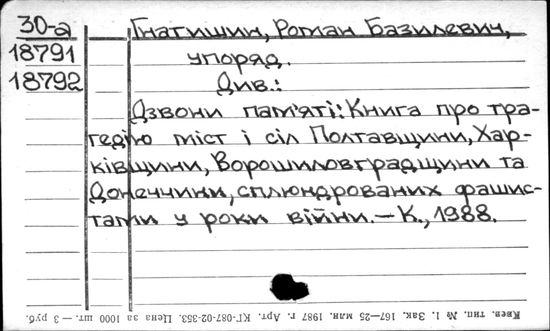 30-а
18791
18792
Гнатишин, Роман Базилевич,
упоряд.
Див.:
Дзвони пам'яті: Книга про тра-
гедію міст і сіл Полтавщини, Хар-
ківщини, Ворошиловградщини та
Донеччини, сплюндрованих фашис-
тами у роки війни. – К., 1988.
Киев. тип. № 1. Зак. 167—25 млн. 1987 г. Арт. КГ-087-02-353. Цена за 1000 шт. — 3 руб.